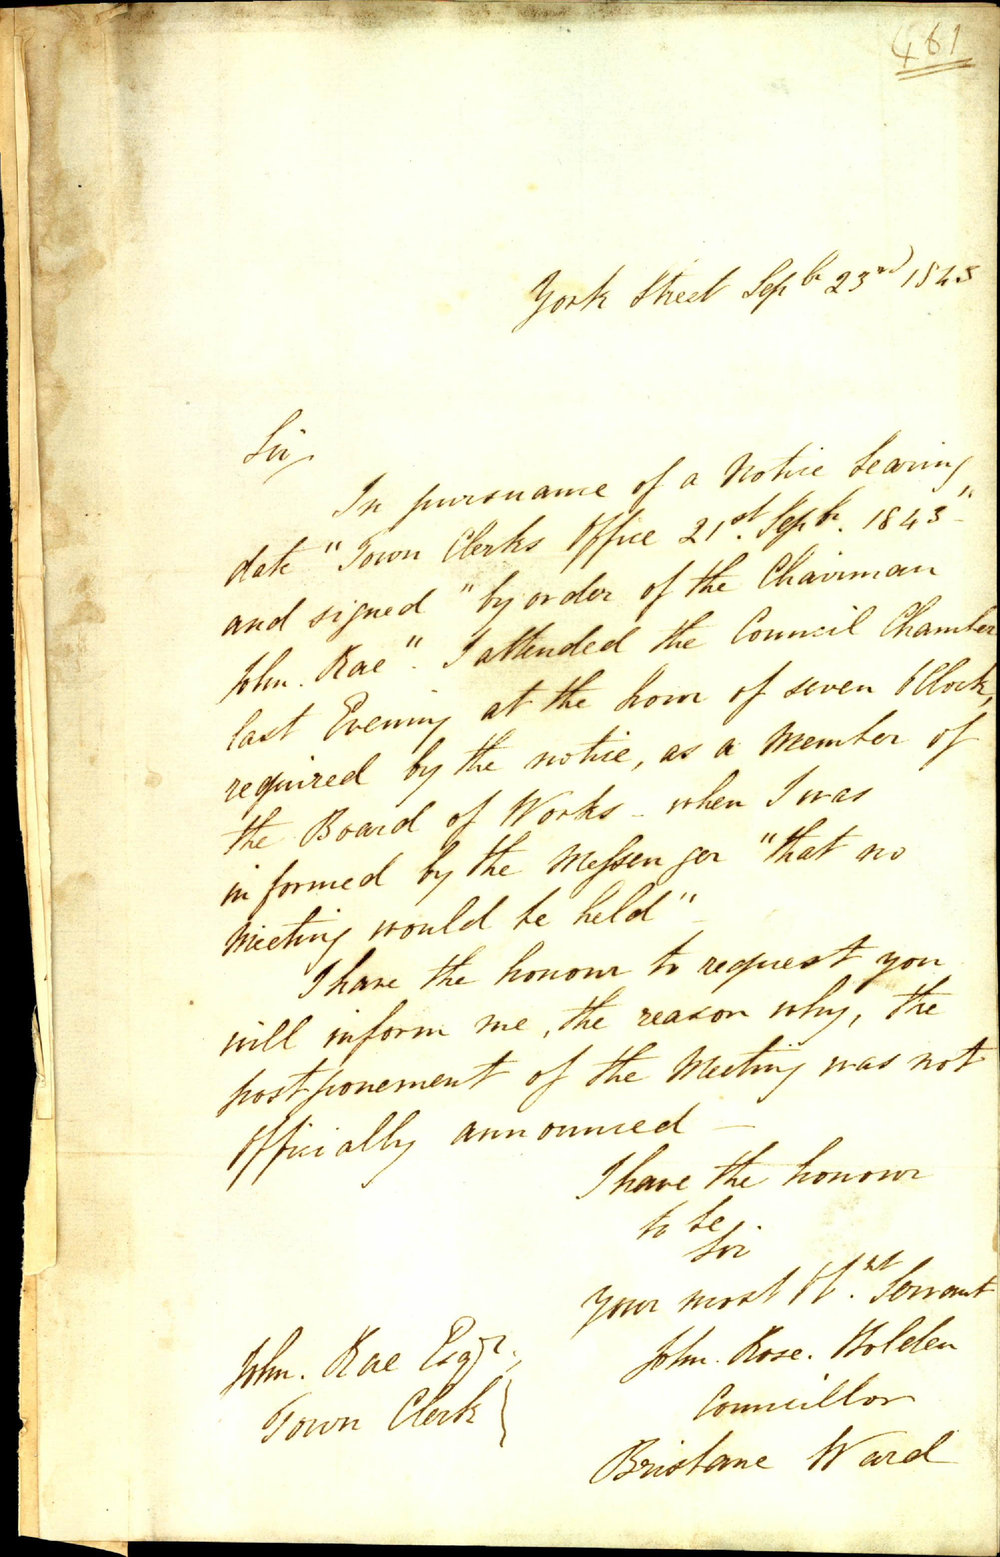 461
York Street Sepbr 23rd 1843
Sir,
In pursuance of a Notice bearing
date "Town Clerks Office 21st. Sepbr. 1843-"
and signed "by order of the Chairman
John. Rae". I attended the Council Chamber
last Evening at the hour of seven OClock,
required by the notice, as a Member of
the Board of Works - when I was
informed by the Messenger "that no
Meeting would be held" -
I have the honour to request you
will inform me, the reason why, the
postponement of the Meeting was not
Officially announced -
I have the honour
to be.
Sir
Your most Obt. Servant
John. Rose. Holden
Councillor
Brisbane Ward
John. Rae Esqr.,
Town Clerk }